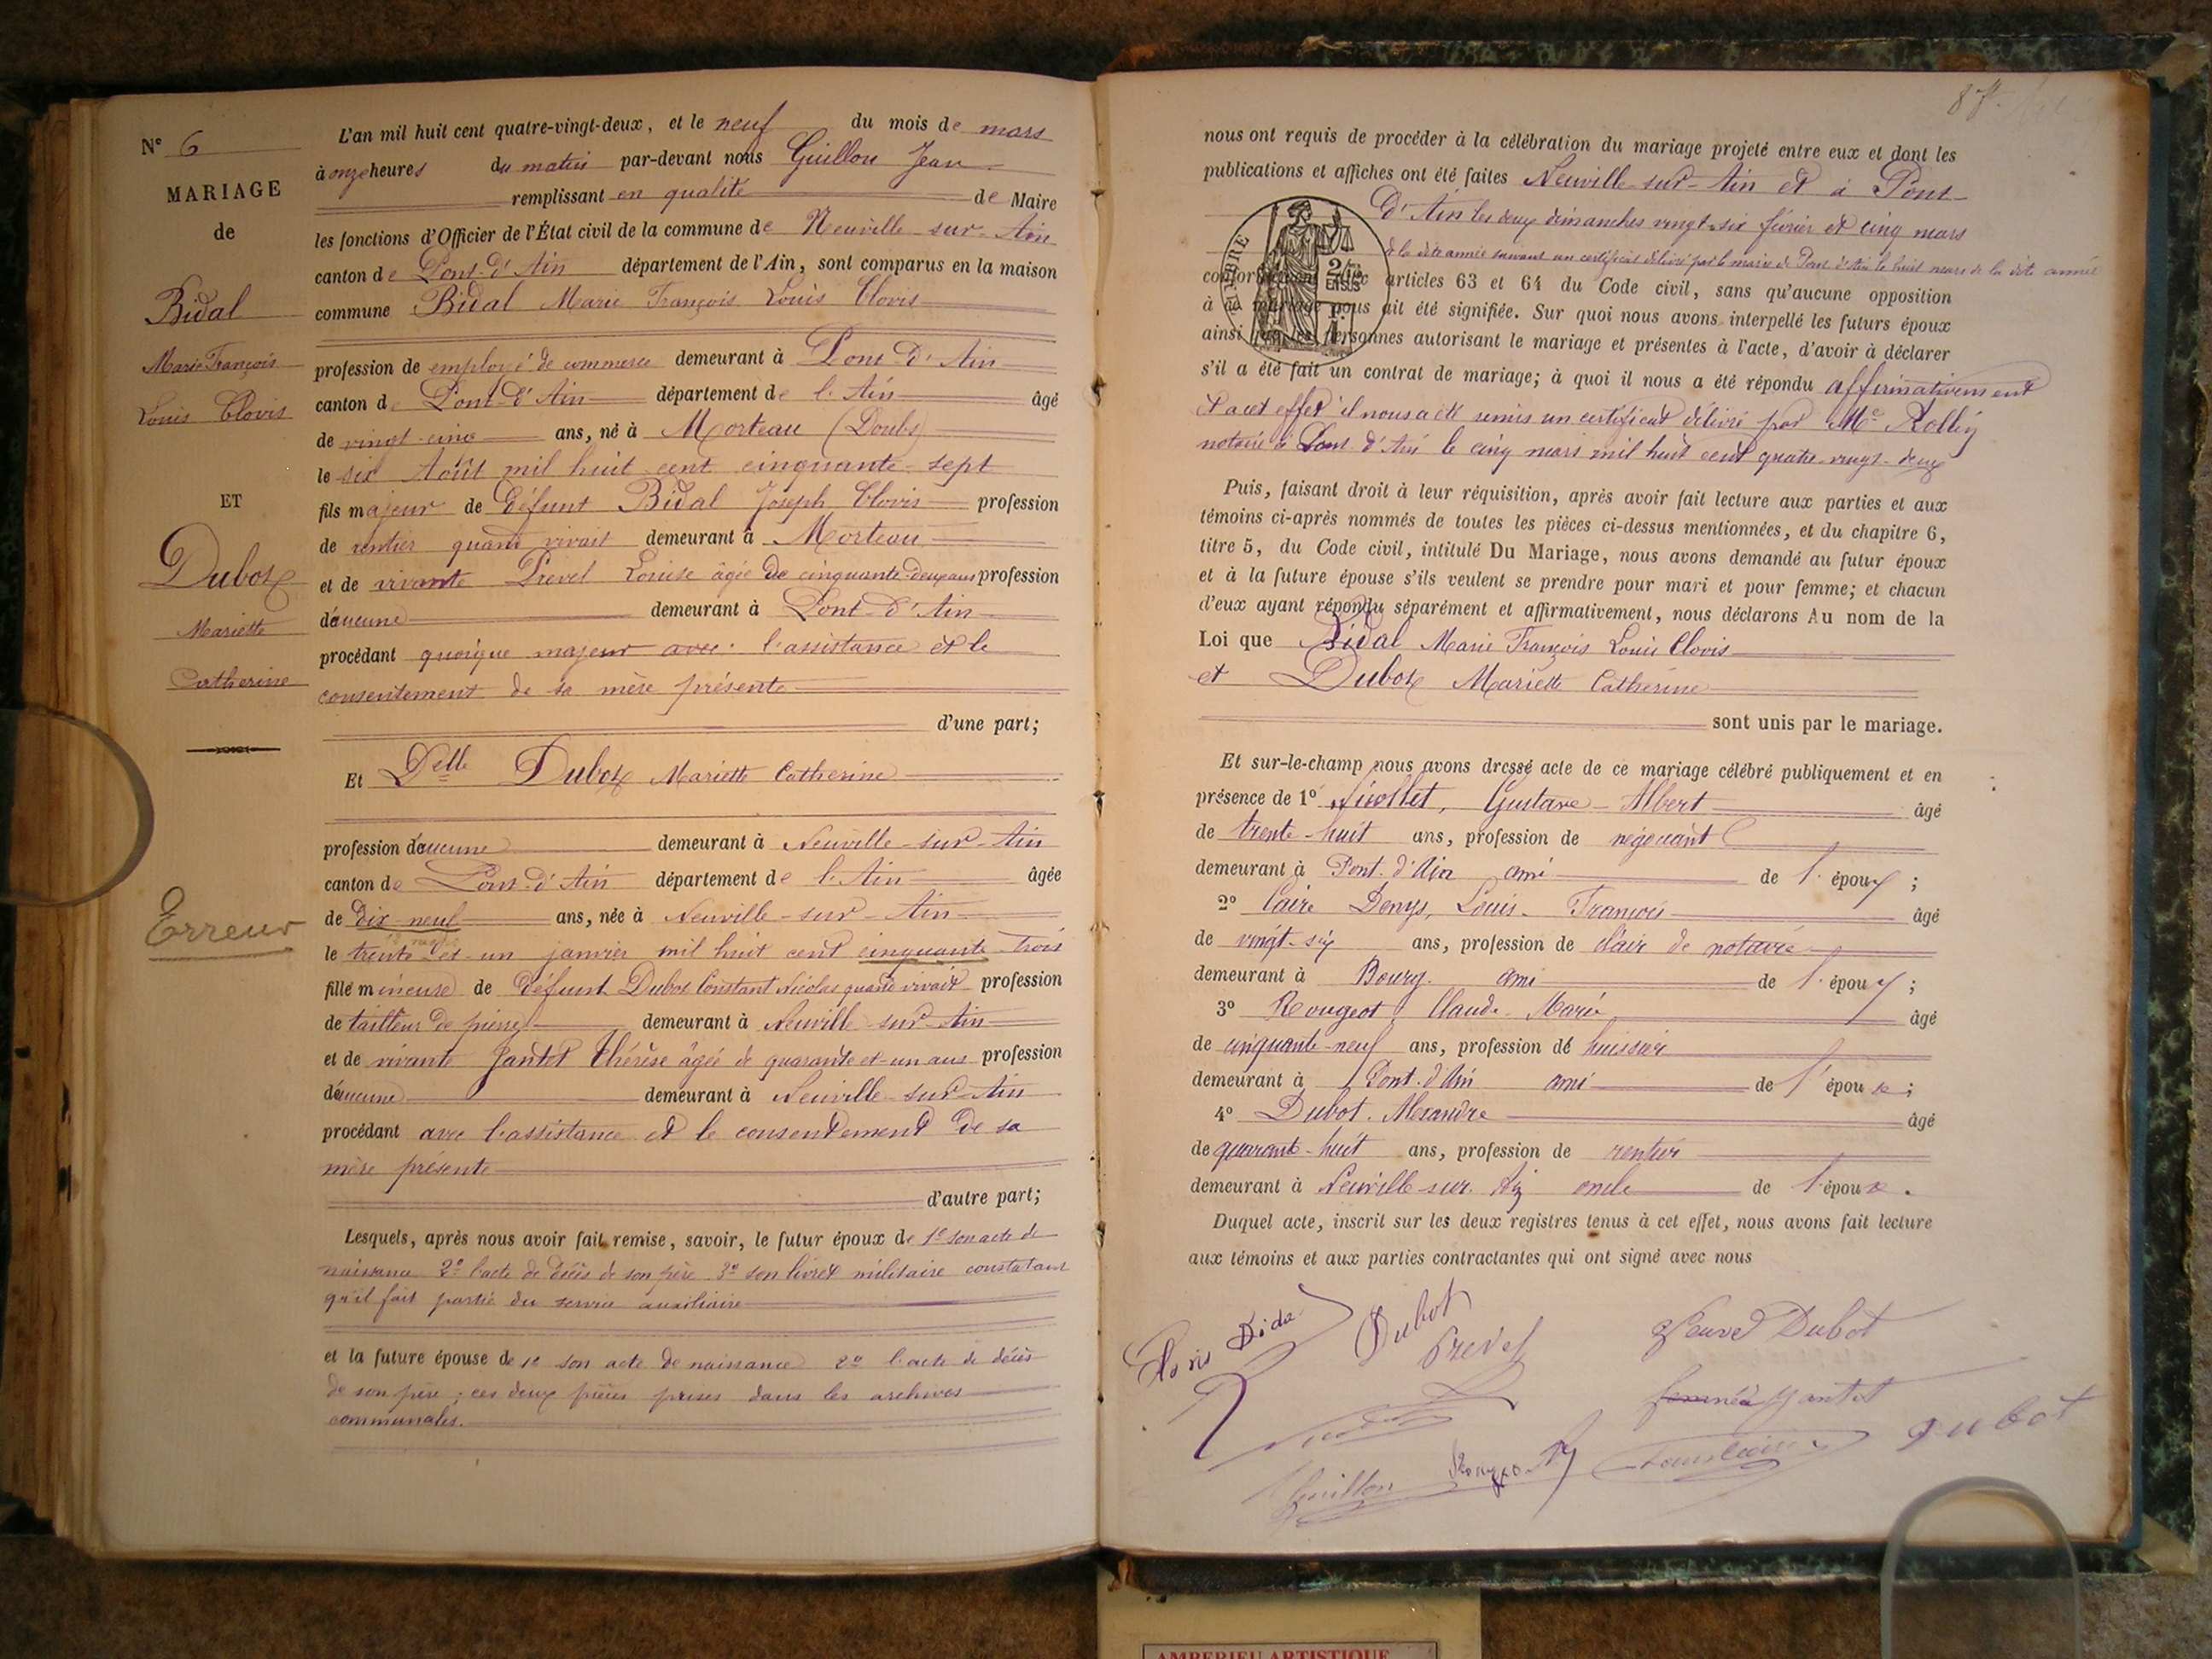 N° 6
MARIAGE
de
Bidal
Marie François
Louis Clovis
ET
Dubot
Mariette
Catherine
Erreur
L'an mil huit cent quatre-vingt-deux, et le neuf du mois de mars
à onze heures du matin par-devant nous Guillon Jean
remplissant en qualité de Maire
les fonctions d'Officier de l'État civil de la commune de Neuville-sur-Ain
canton de Pont-d'Ain département de l'Ain, sont comparus en la maison
commune Bidal Marie François Louis Clovis
profession de employé de commerce demeurant à Pont d'Ain
canton de Pont-d'Ain département de l'Ain âgé
de vingt-cinq ans, né à Morteau (Doubs)
le six Août mil huit cent cinquante-sept
fils majeur de défunt Bidal Joseph Clovis profession
de rentier quand vivait demeurant à Morteau
et de vivante Prevel Louise âgée de cinquante-deux ans profession
d'aucune demeurant à Pont-d'Ain
procédant quoique majeur avec l'assistance et le
consentement de sa mère présente
d'une part;
Et Delle Dubot Mariette Catherine
profession d'aucune demeurant à Neuville-sur-Ain
canton de Pont-d'Ain département de l'Ain âgée
de dix-neuf ans, née à Neuville-sur-Ain
le trente-et-un janvier mil huit cent cinquante-trois
fille mineure de défunt Dubot Constant Nicolas quand vivait profession
de tailleur de pierre demeurant à Neuville-sur-Ain
et de vivante Jantet Thérèse âgée de quarante-et-un ans profession
d'aucune demeurant à Neuville-sur-Ain
procédant avec l'assistance et le consentement de sa
mère présente
d'autre part;
Lesquels, après nous avoir fait remise, savoir, le futur époux de 1° son acte de
naissance 2° l'acte de décès de son père 3° son livret militaire constatant
qu'il fait partie du service auxiliaire
et la future épouse de 1° son acte de naissance 2° l'acte de décès
de son père; ces deux pièces prises dans les archives
communales.
87
nous ont requis de procéder à la célébration du mariage projeté entre eux et dont les
publications et affiches ont été faites Neuville-sur-Ain et à Pont
d'Ain les deux dimanches vingt-six février et cinq mars
de la dite année suivant un certificat délivré par le maire de Pont d'Ain le huit mars de la dite année
TIMBRE
conformément aux articles 63 et 64 du Code civil, sans qu'aucune opposition
à ce mariage nous ait été signifiée. Sur quoi nous avons interpellé les futurs époux
ainsi que les personnes autorisant le mariage et présentes à l'acte, d'avoir à déclarer
s'il a été fait un contrat de mariage; à quoi il nous a été répondu affirmativement
et à cet effet il nous a été remis un certificat délivré par Me Rolley
notaire à Pont-d'Ain le cinq mars mil huit cent quatre-vingt-deux
Puis, faisant droit à leur réquisition, après avoir fait lecture aux parties et aux
témoins ci-après nommés de toutes les pièces ci-dessus mentionnées, et du chapitre 6,
titre 5, du Code civil, intitulé Du Mariage, nous avons demandé au futur époux
et à la future épouse s'ils veulent se prendre pour mari et pour femme; et chacun
d'eux ayant répondu séparément et affirmativement, nous déclarons Au nom de la
Loi que Bidal Marie François Louis Clovis
et Dubot Mariette Catherine
sont unis par le mariage.
Et sur-le-champ nous avons dressé acte de ce mariage célébré publiquement et en
présence de 1° Nicollet, Gustave-Albert âgé
de trente-huit ans, profession de négociant
demeurant à Pont-d'Ain ami de l'époux;
2° Caire Denys, Louis-François âgé
de vingt-six ans, profession de clerc de notaire
demeurant à Bourg ami de l'époux;
3° Rougeot Claude-Marie âgé
de cinquante-neuf ans, profession de huissier
demeurant à Pont-d'Ain ami de l'époux;
4° Dubot Alexandre âgé
de quarante-huit ans, profession de rentier
demeurant à Neuville-sur-Ain oncle de l'épouse.
Duquel acte, inscrit sur les deux registres tenus à cet effet, nous avons fait lecture
aux témoins et aux parties contractantes qui ont signé avec nous
Clovis Bidal Dubot
Prevel
Veuve Dubot
née Jantet
Dubot
Guillon Rougeot
AMBERIEU ARTISTIQUE